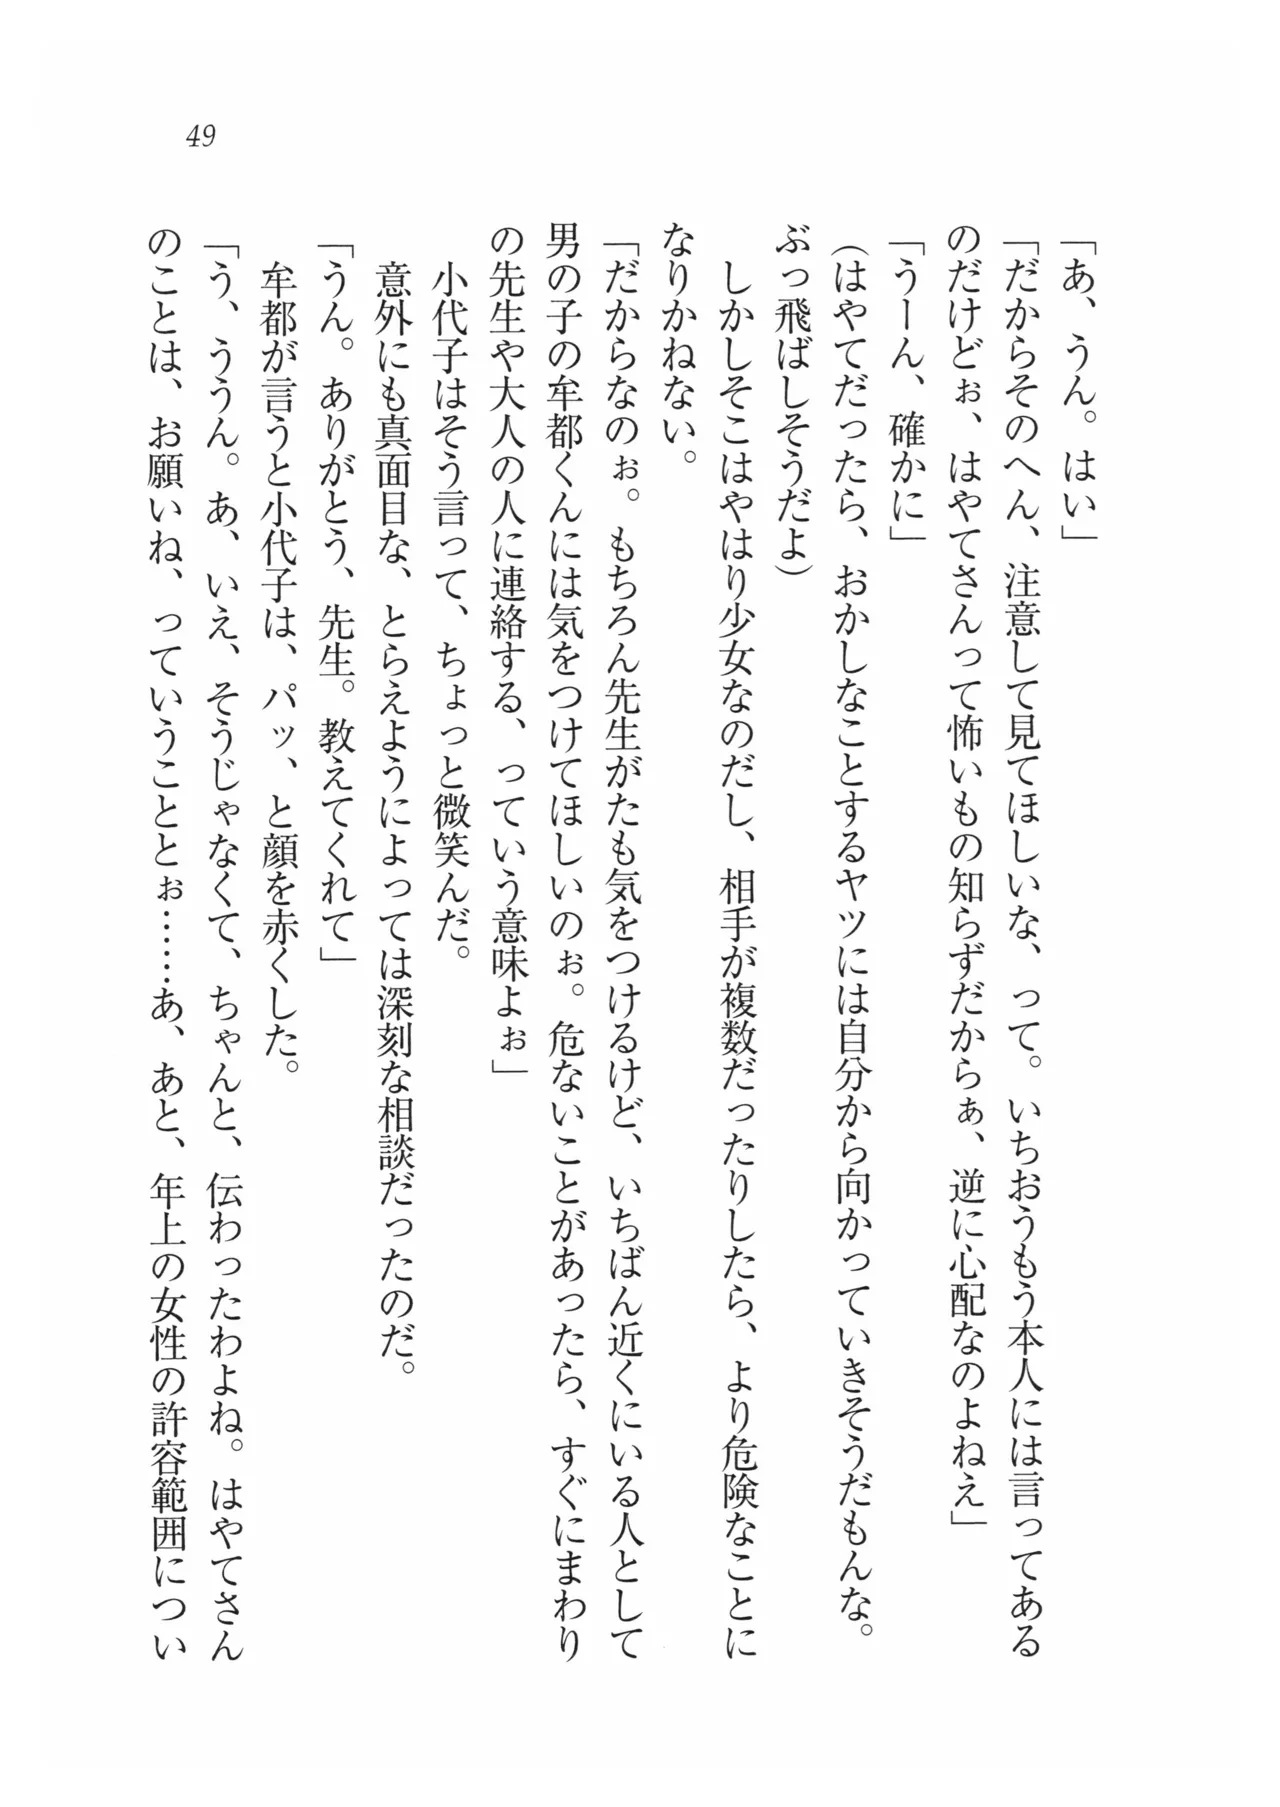 49
「あ、うん。はい」
「だからそのへん、注意して見てほしいな、って。いちおうもう本人には言ってある
のだけどぉ、はやてさんって怖いもの知らずだからぁ、逆に心配なのよねえ」
「うーん、確かに」
（はやてだったら、おかしなことするヤツには自分から向かっていきそうだもんな。
ぶっ飛ばしそうだよ）
　しかしそこはやはり少女なのだし、相手が複数だったりしたら、より危険なことに
なりかねない。
「だからなのぉ。もちろん先生がたも気をつけるけど、いちばん近くにいる人として
男の子の牟都くんには気をつけてほしいのぉ。危ないことがあったら、すぐにまわり
の先生や大人の人に連絡する、っていう意味よぉ」
　小代子はそう言って、ちょっと微笑んだ。
　意外にも真面目な、とらえようによっては深刻な相談だったのだ。
「うん。ありがとう、先生。教えてくれて」
　牟都が言うと小代子は、パッ、と顔を赤くした。
「う、ううん。あ、いえ、そうじゃなくて、ちゃんと、伝わったわよね。はやてさん
のことは、お願いね、っていうこととぉ……あ、あと、年上の女性の許容範囲につい